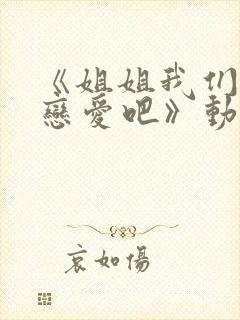 《姐姐我们
戀愛吧》動
哀如傷